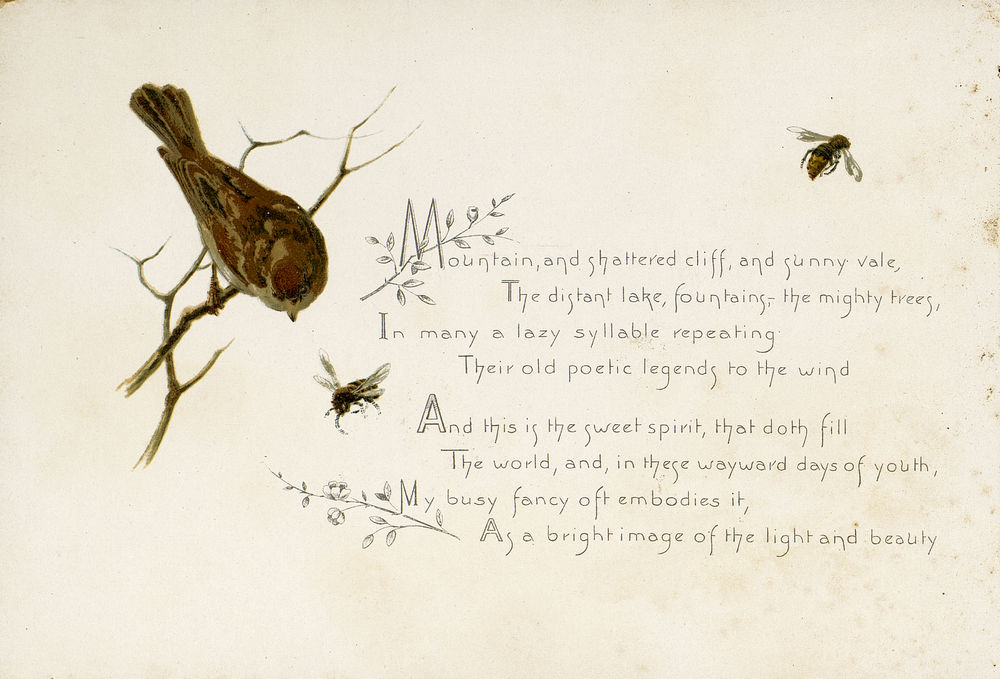 Mountain, and shattered cliff, and sunny vale,
The distant lake, fountains,- the mighty trees,
In many a lazy syllable repeating
Their old poetic legends to the wind
And this is the sweet spirit, that doth fill
The world, and, in these wayward days of youth,
My busy fancy oft embodies it,
As a bright image of the light and beauty